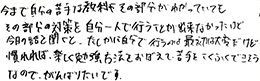 今まで自分の苦手な教科やその部分がわかっていても
その部分の対策を自分一人で行うことが出来なかったけど
今回の話を聞くと、たしかに自分で行うのは最初は大変だけど
慣れれば、楽しく勉強方法をおぼえて苦手もなくしていくことができそう
なので、がんばりたいです。